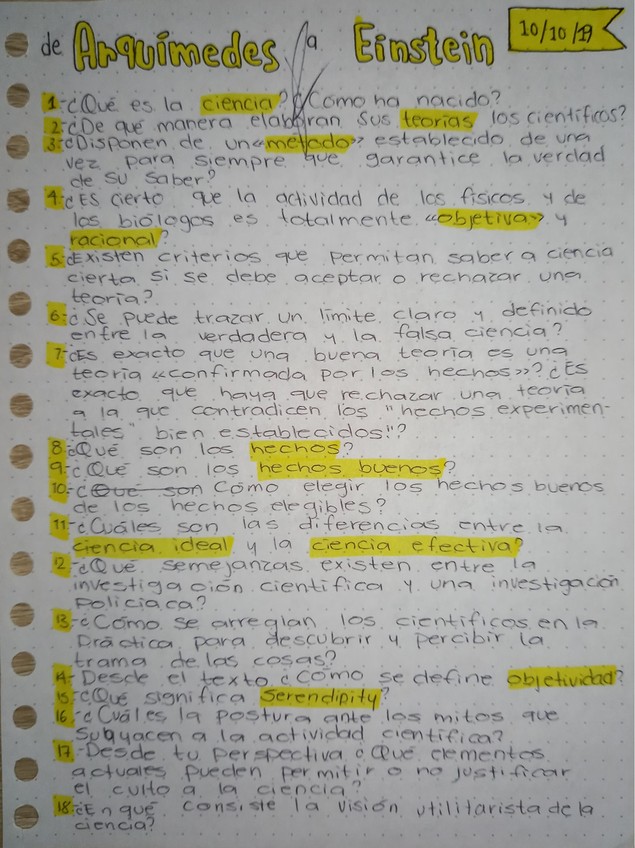 de Arquímedes a Einstein 10/10/19
1.-¿Qué es la ciencia? ¿Cómo ha nacido?
2.-¿De qué manera elaboran sus teorías los científicos?
3.-¿Disponen de un «método» establecido de una
vez para siempre que garantice la verdad
de su saber?
4.-¿ES cierto que la actividad de los físicos y de
los biólogos es totalmente «objetiva» y
racional?
5.-¿Existen criterios que permitan saber a ciencia
cierta si se debe aceptar o rechazar una
teoría?
6.-¿Se puede trazar un límite claro y definido
entre la verdadera y la falsa ciencia?
7.-¿Es exacto que una buena teoría es una
teoría «confirmada por los hechos»? ¿Es
exacto que haya que rechazar una teoría
a la que contradicen los "hechos experimen-
tales" bien establecidos"?
8.-¿Qué son los hechos?
9.-¿Qué son los hechos buenos?
10.-¿Qué son Cómo elegir los hechos buenos
de los hechos elegibles?
11.-¿Cuáles son las diferencias entre la
ciencia ideal y la ciencia efectiva?
2.-¿Qué semejanzas existen entre la
investigación científica y una investigación
policiaca?
13.-¿Cómo se arreglan los científicos en la
práctica para descubrir y percibir la
trama de las cosas?
14.-Desde el texto ¿Cómo se define objetividad?
15.-¿Qué significa Serendipity?
16.-¿Cuál es la postura ante los mitos que
subyacen a la actividad científica?
17.-Desde tu perspectiva ¿Qué elementos
actuales pueden permitir o no justificar
el culto a la ciencia?
18.-¿En qué consiste la visión utilitarista de la
ciencia?